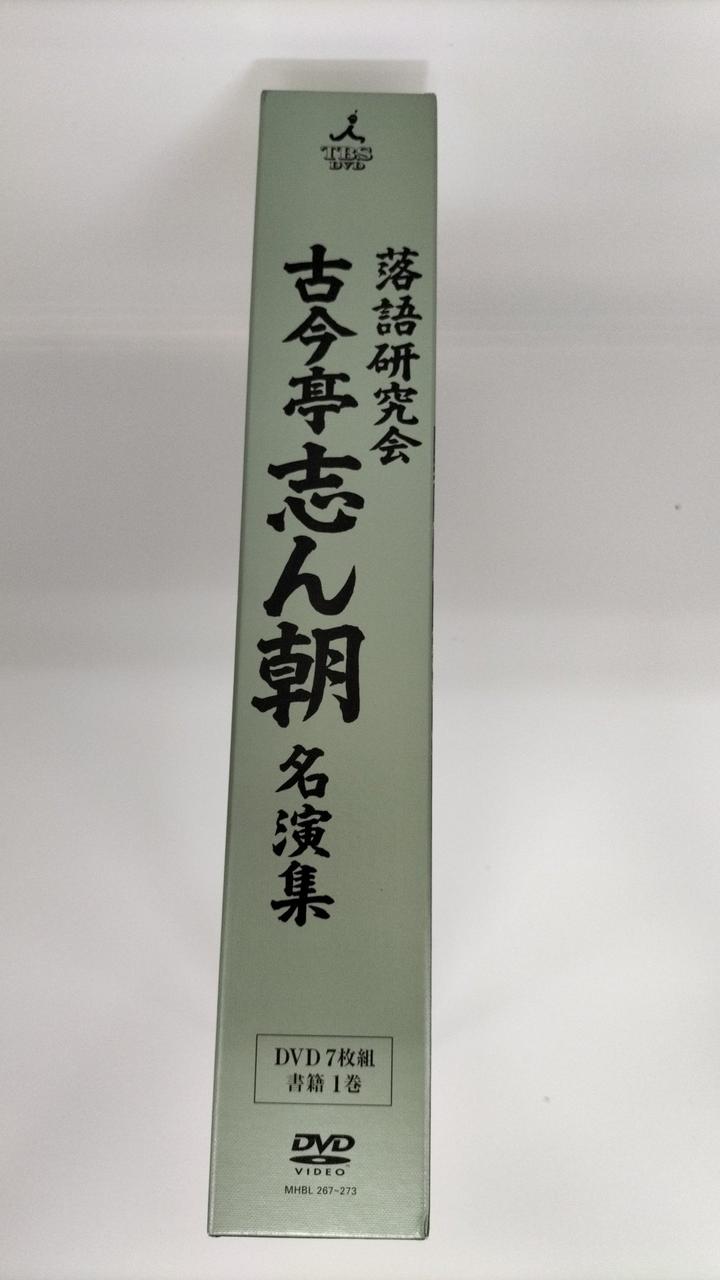 TBS
DVD
落語研究会
古今亭志ん朝名演集
DVD 7枚組
書籍 1巻
DVD
VIDEO™
MHBL 267~273